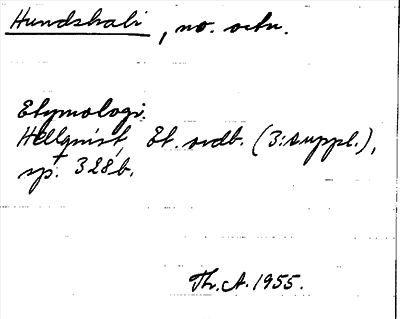 Hundskali, no. octn.
Etymologi.
Hellquist, Et. ordb. (3: suppl.),
sp. 328 b.
Th. A. 1955.